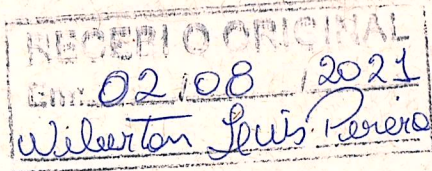 RECEBI O ORIGINAL
Em: 02 / 08 / 2021
Wilberton Luis Pereira